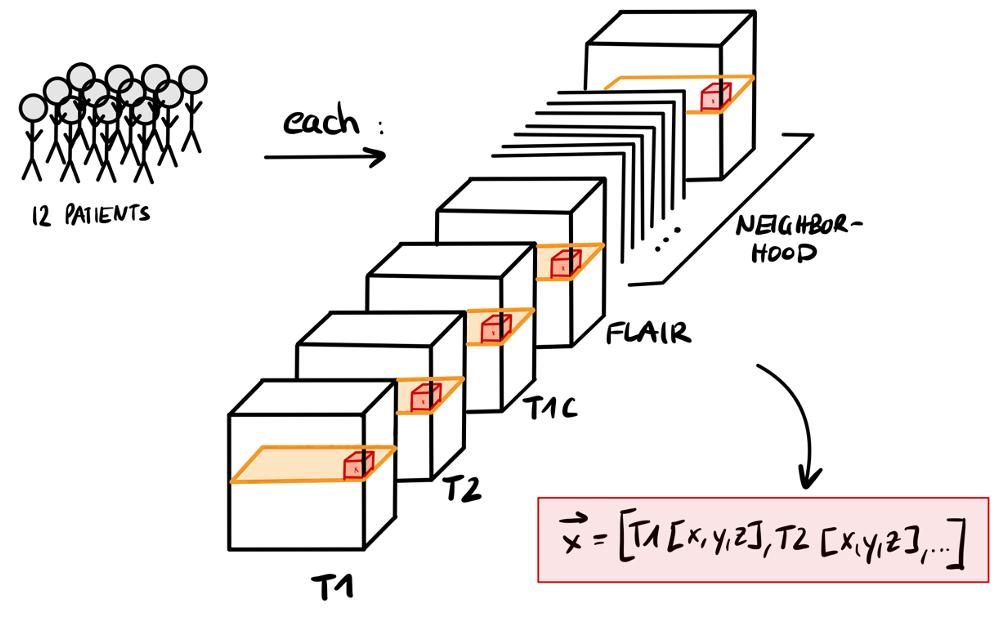 each :
12 PATIENTS
NEIGHBOR-
HOOD
FLAIR
T1C
T2
T1
x = [T1[x,y,z], T2 [x,y,z],...]